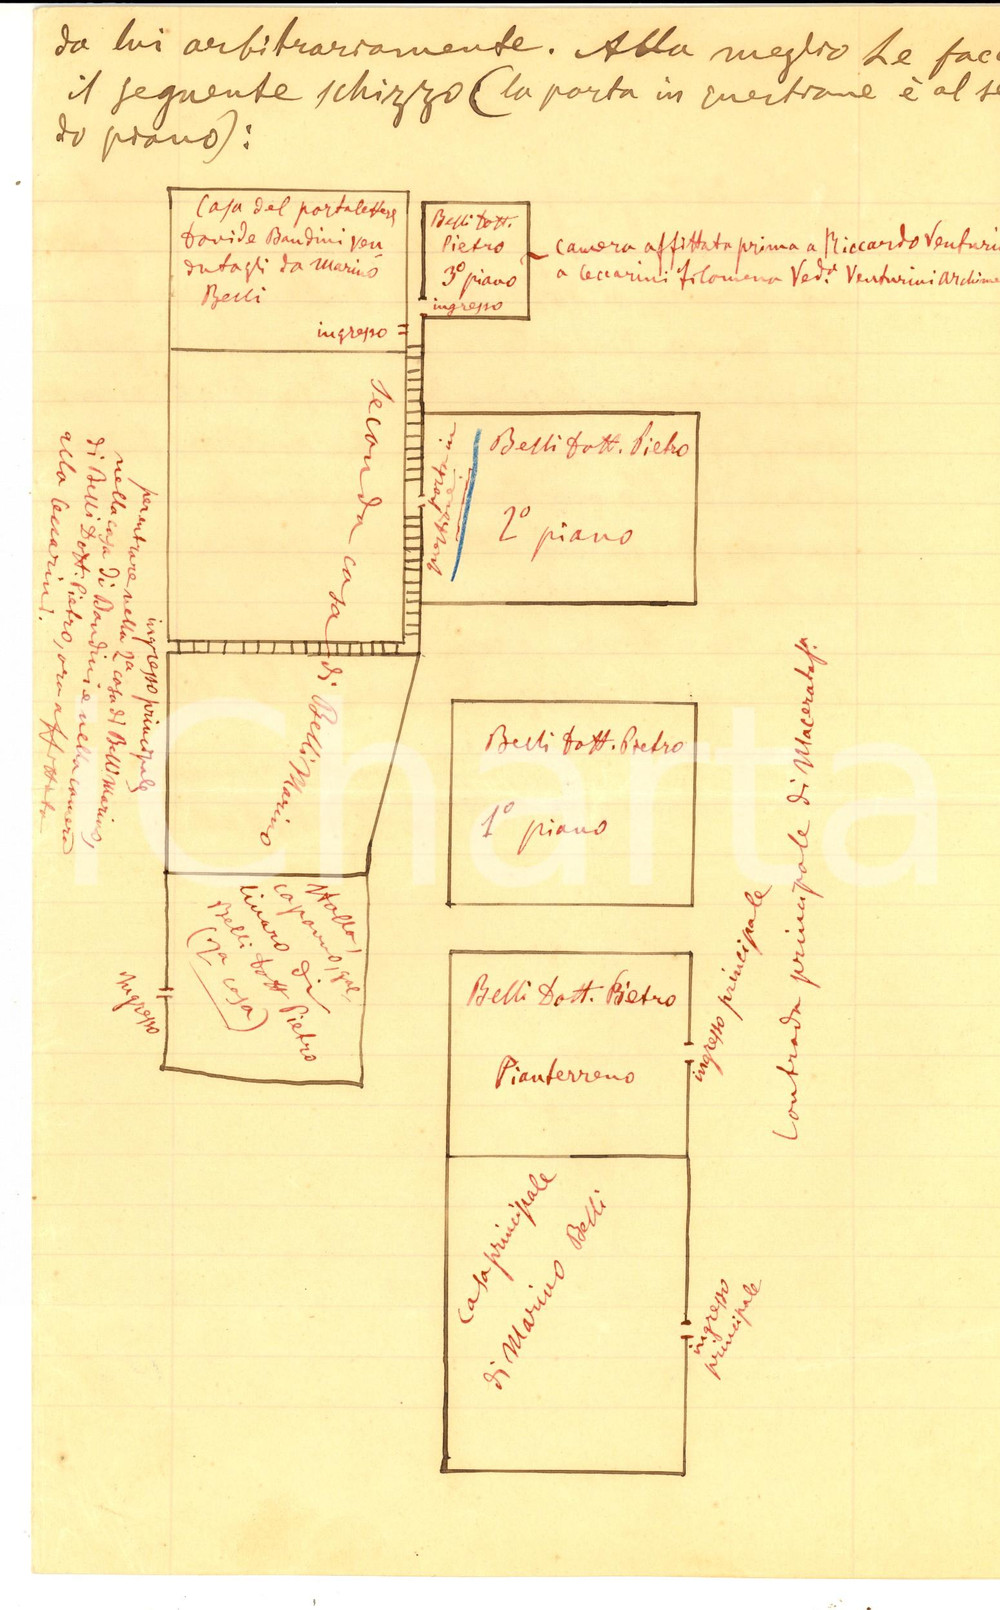 da lui arbitrariamente. Alla meglio Le facc
il seguente schizzo (la porta in questione è al se
do piano):
Casa del portalettere
Davide Bandini ven
dutagli da Marino
Belli
ingresso
Belli Dott.
Pietro
3° piano
ingresso
camera affittata prima a Riccardo Venturi
a Ceccarini Filomena Ved.ª Venturini Archime
Seconda casa di Belli Marino
Belli Dott. Pietro
2° piano
ingresso principale
per entrare nella 2ª casa di Belli Marino,
nella casa di Bandini e nella camera
di Belli Dott. Pietro, ora affittata
alla Ceccarini.
Belli Dott. Pietro
1° piano
Contrada principale di Macerata
Stalla,
capanno, gal
linaro di
Belli Dott Pietro
(2ª casa)
ingresso
Belli Dott. Pietro
Pianterreno
ingresso principale
Casa principale
di Marino Belli
ingresso
principale
Charta